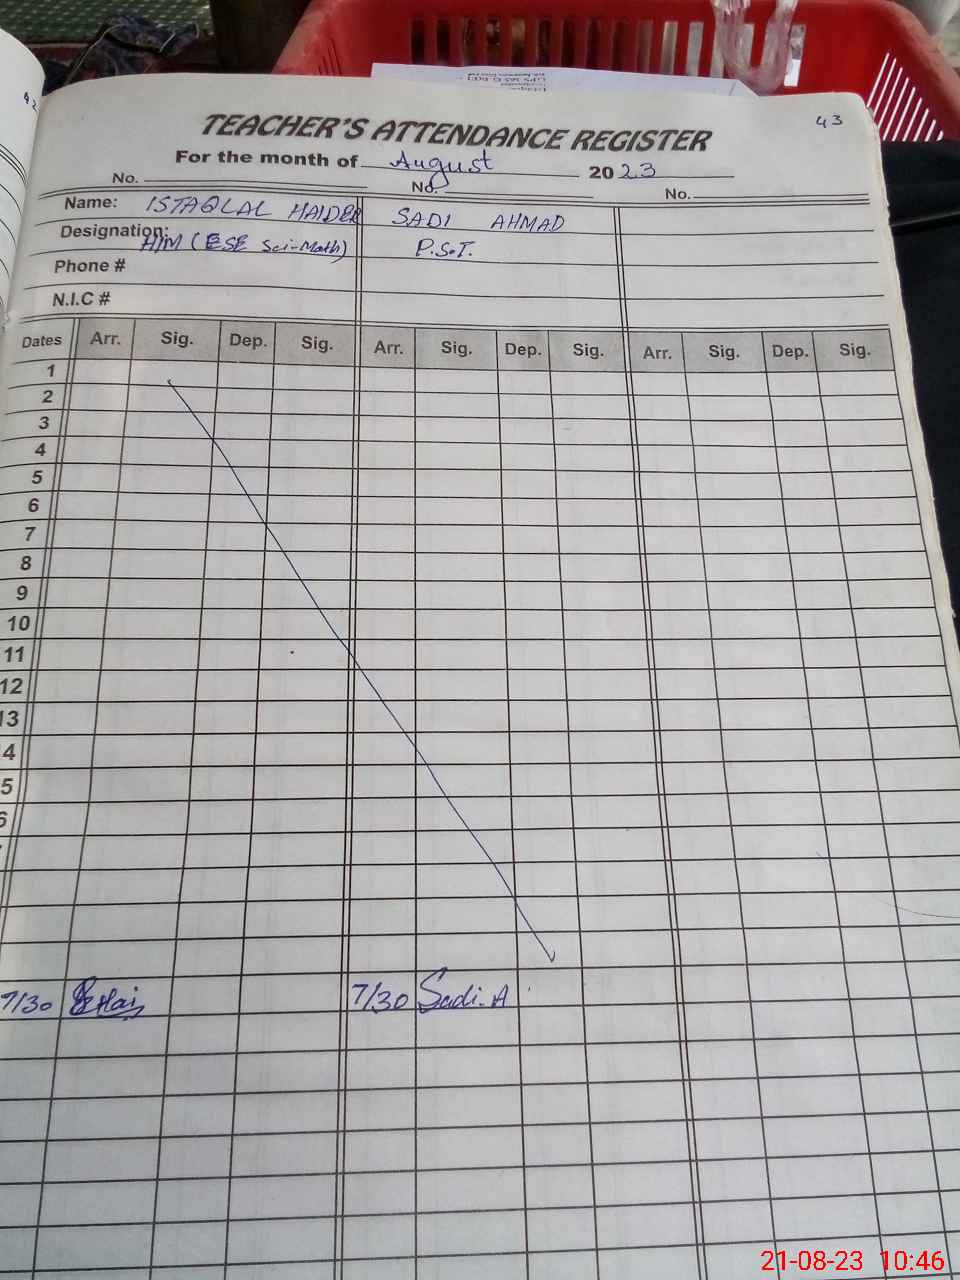 42
43
TEACHER'S ATTENDANCE REGISTER
For the month of August 2023
No. No. No.
Name: ISTAQLAL HAIDER SADI AHMAD
Designation: H/M (ESE Sci-Math) P.S.T.
Phone #
N.I.C #
Dates Arr. Sig. Dep. Sig. Arr. Sig. Dep. Sig. Arr. Sig. Dep. Sig.
1
2
3
4
5
6
7
8
9
10
11
12
13
4
5
6
7/30 7/30 Sadi-A
21-08-23 10:46